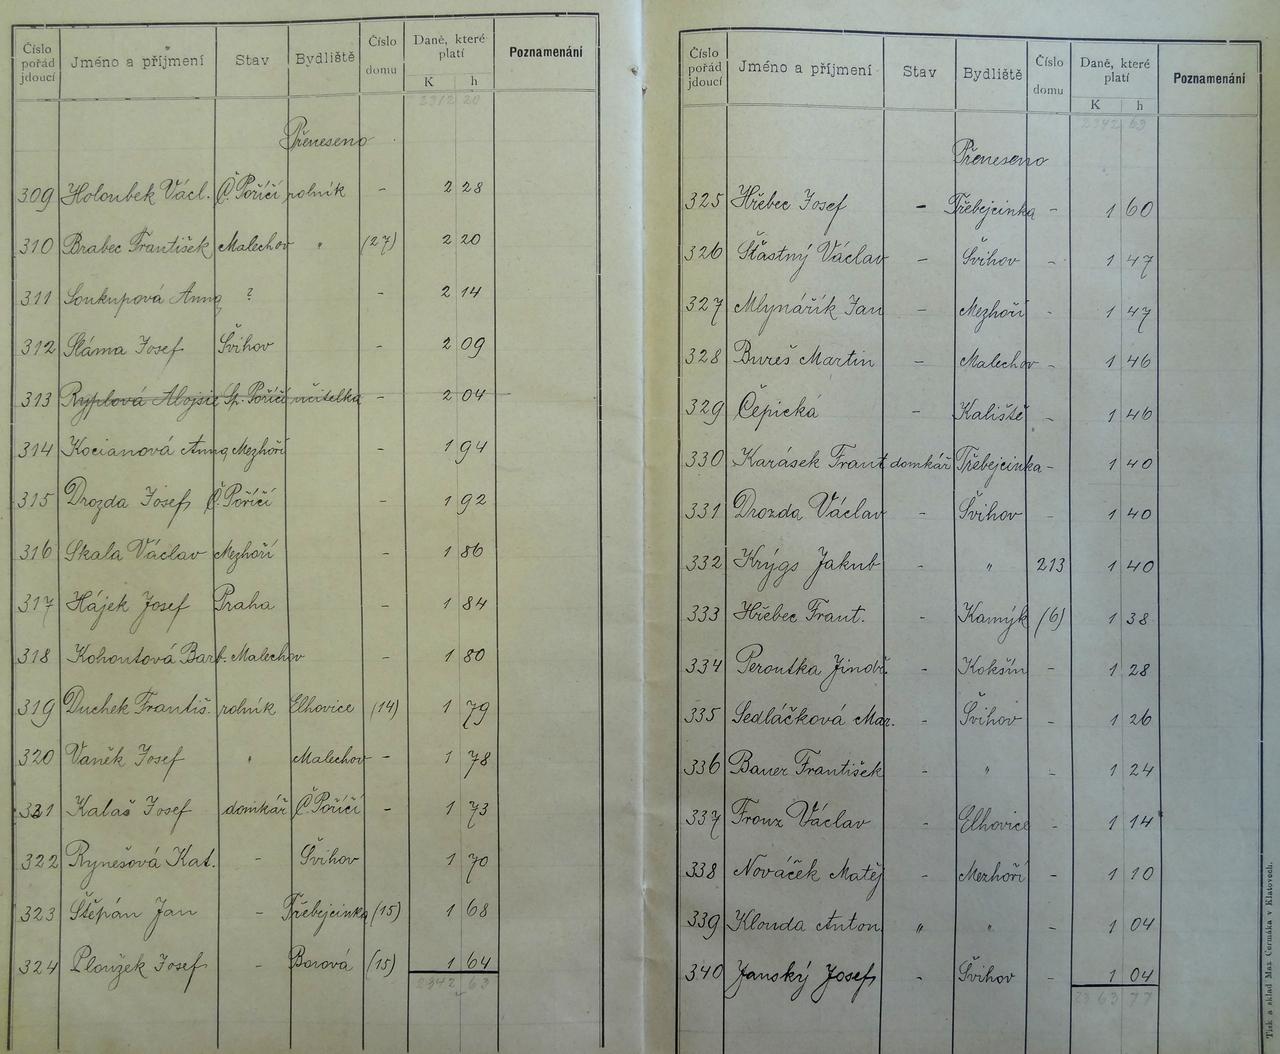 Číslo pořád jdoucí Jméno a příjmení Stav Bydliště Číslo domu Daně, které platí K h Poznamenání
2312 20
Přeneseno
309 Holoubek Václ. Č. Poříčí rolník - 2 28
310 Brabec František Malechov " (27) 2 20
311 Soukupová Anna ? - 2 14
312 Sláma Josef Švihov - 2 09
313 Ryplová Aloisie Sp. Poříčí učitelka - 2 04
314 Kocianová Anna Mezhoří - 1 94
315 Drozda Josef Č. Poříčí - 1 92
316 Skala Václav Mezhoří - 1 86
317 Hájek Josef Praha - 1 84
318 Kohoutová Barb. Malechov - 1 80
319 Duchek Františ. rolník Elhovice (14) 1 79
320 Vaněk Josef " Malechov - 1 78
321 Kalaš Josef domkář Č Poříčí - 1 73
322 Rynešová Kat. - Švihov 1 70
323 Štěpán Jan - Třebejcinka (15) 1 68
324 Ploužek Josef - Borová (15) 1 64
2342 63
Číslo pořád jdoucí Jméno a příjmení Stav Bydliště Číslo domu Daně, které platí K h Poznamenání
2342 63
Přeneseno
325 Hřebec Josef - Třebejcinka - 1 60
326 Šťastný Václav - Švihov - 1 47
327 Mlynářík Jan - Mezhoří - 1 47
328 Bureš Martin - Malechov - 1 46
329 Čepická - Kaliště - 1 46
330 Karásek Frant. domkář Třebejcinka - 1 40
331 Drozda Václav - Švihov - 1 40
332 Krýgs Jakub - " 213 1 40
333 Hřebec Frant. - Kamýk (6) 1 38
334 Peroutka Jindř. - Kokšín - 1 28
335 Sedláčková Mar. - Švihov - 1 26
336 Bauer František - " - 1 24
337 Fronz Václav - Elhovice - 1 14
338 Nováček Matěj - Mezhoří - 1 10
339 Klouda Anton " " - 1 04
340 Janský Josef - Švihov - 1 04
2363 77
Tisk a sklad Max Čermáka v Klatovech.